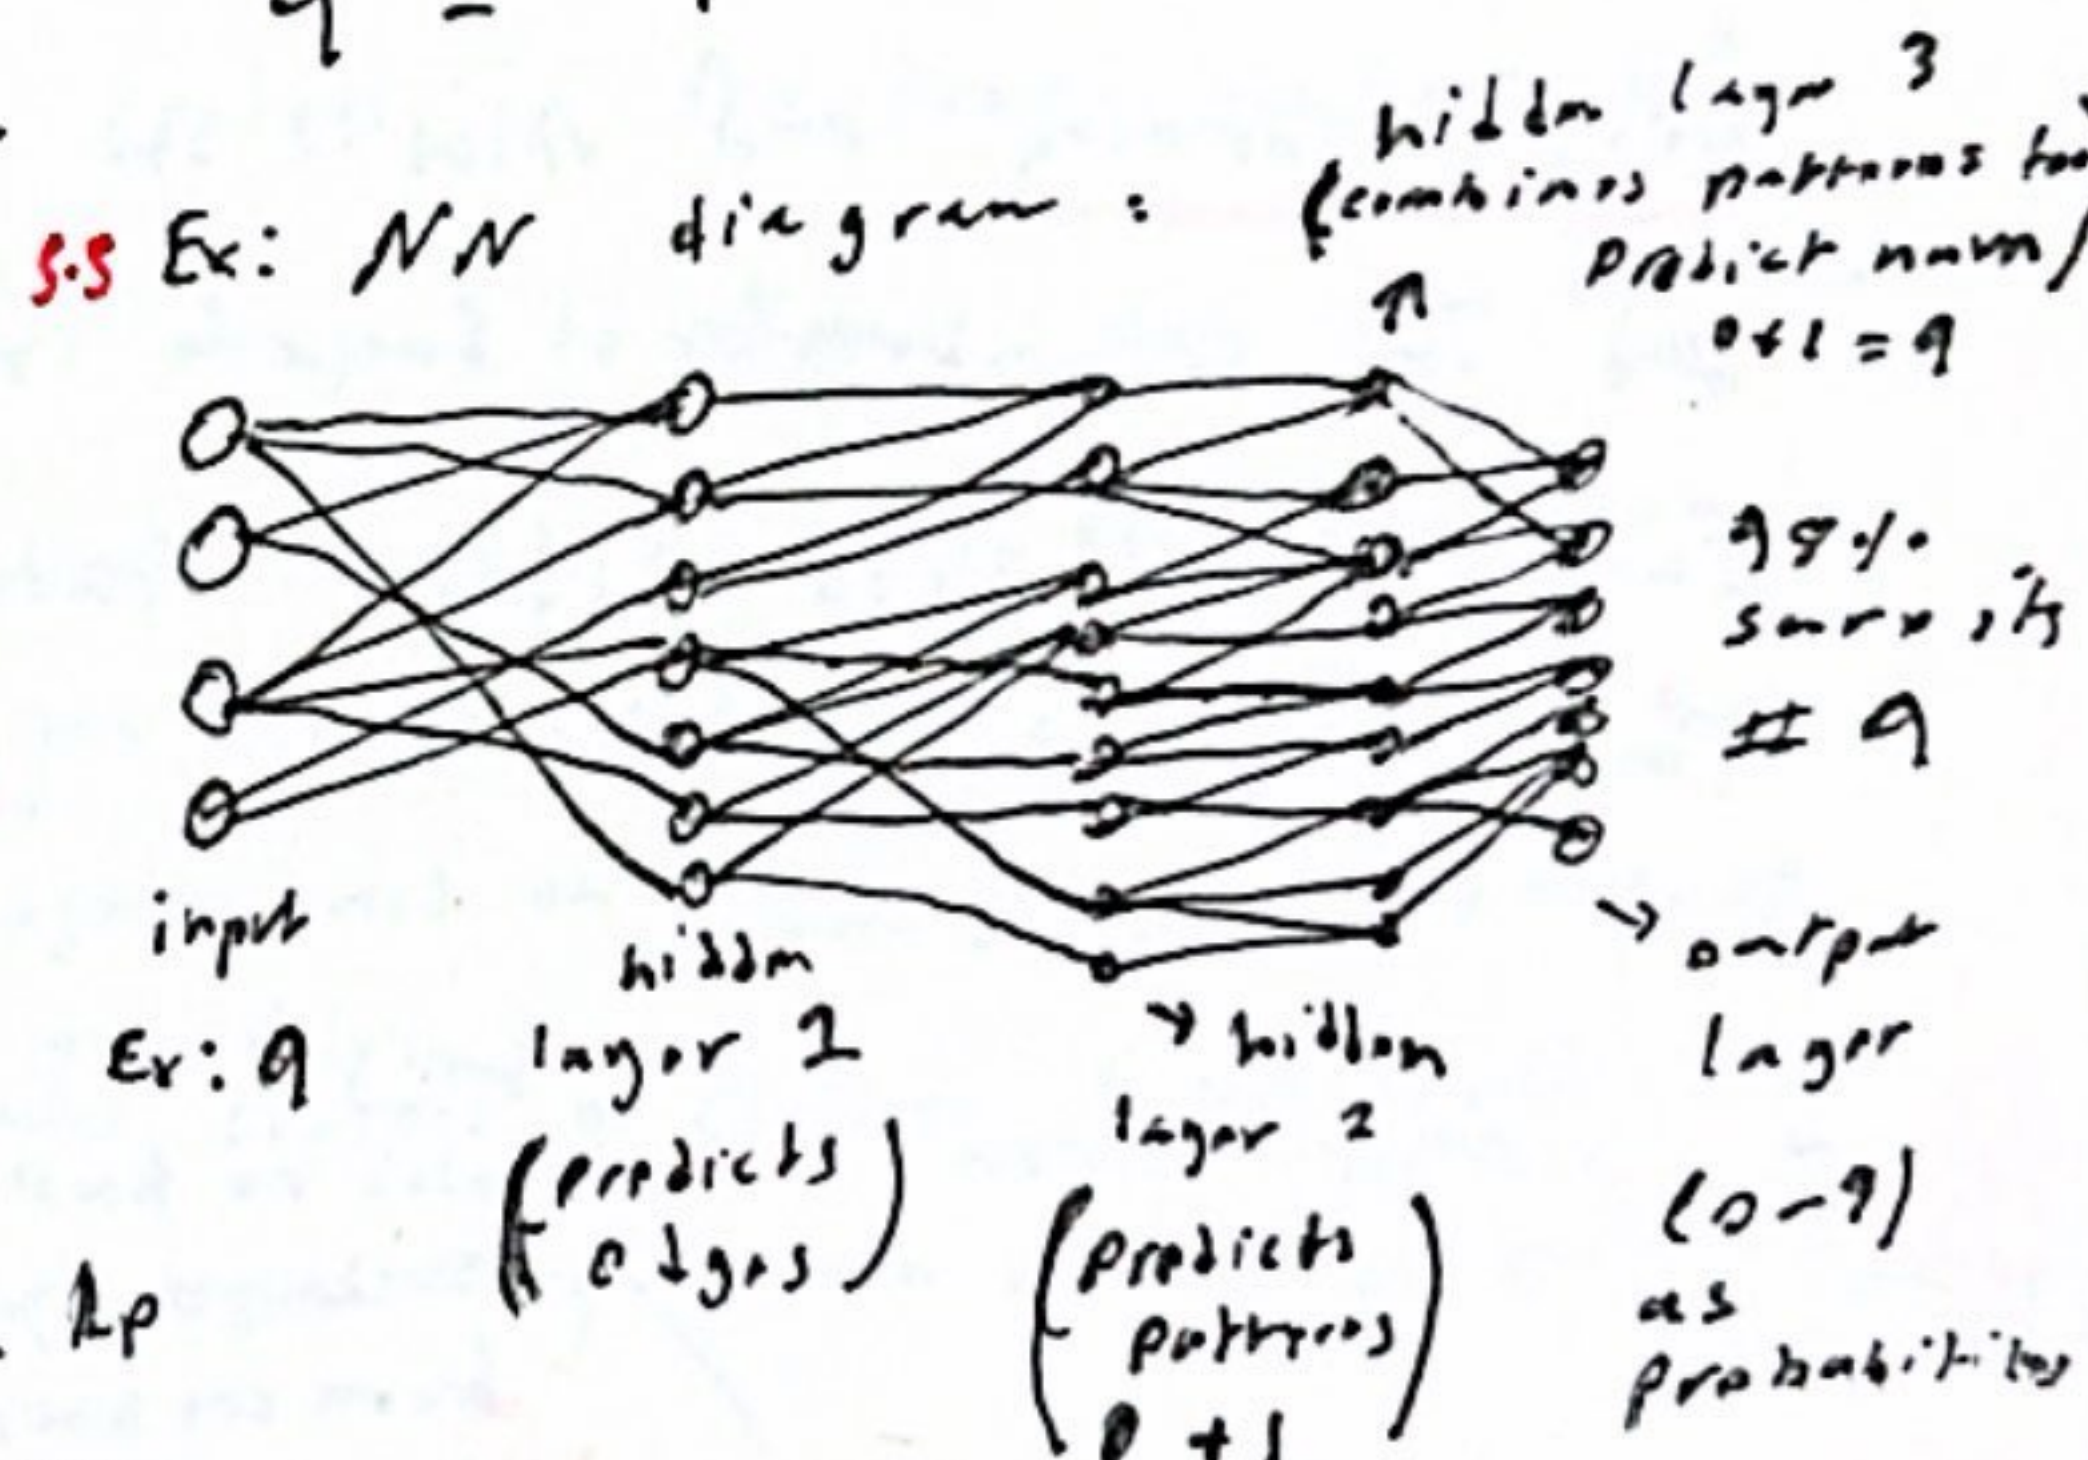 hidden layer 3
(combines patterns to
predict num)
0+1 = 9
5.5 Ex: NN diagram:
↑
98%
sure its
# 9
input
Ex: 9
hidden
layer 1
(predicts
edges)
→ hidden
layer 2
(predicts
patterns
0 + 1
→ output
layer
(0-9)
as
probabilities